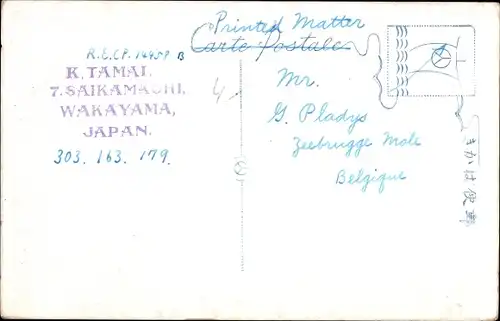 Printed Matter
Carte Postale
R.E.C.P. 14459 B
K. TAMAI.
7. SAIKAMACHI.
WAKAYAMA,
JAPAN.
303. 163. 179.
4
Mr.
G. Pladys
Zeebrugge Mole
Belgique
きかは便郵